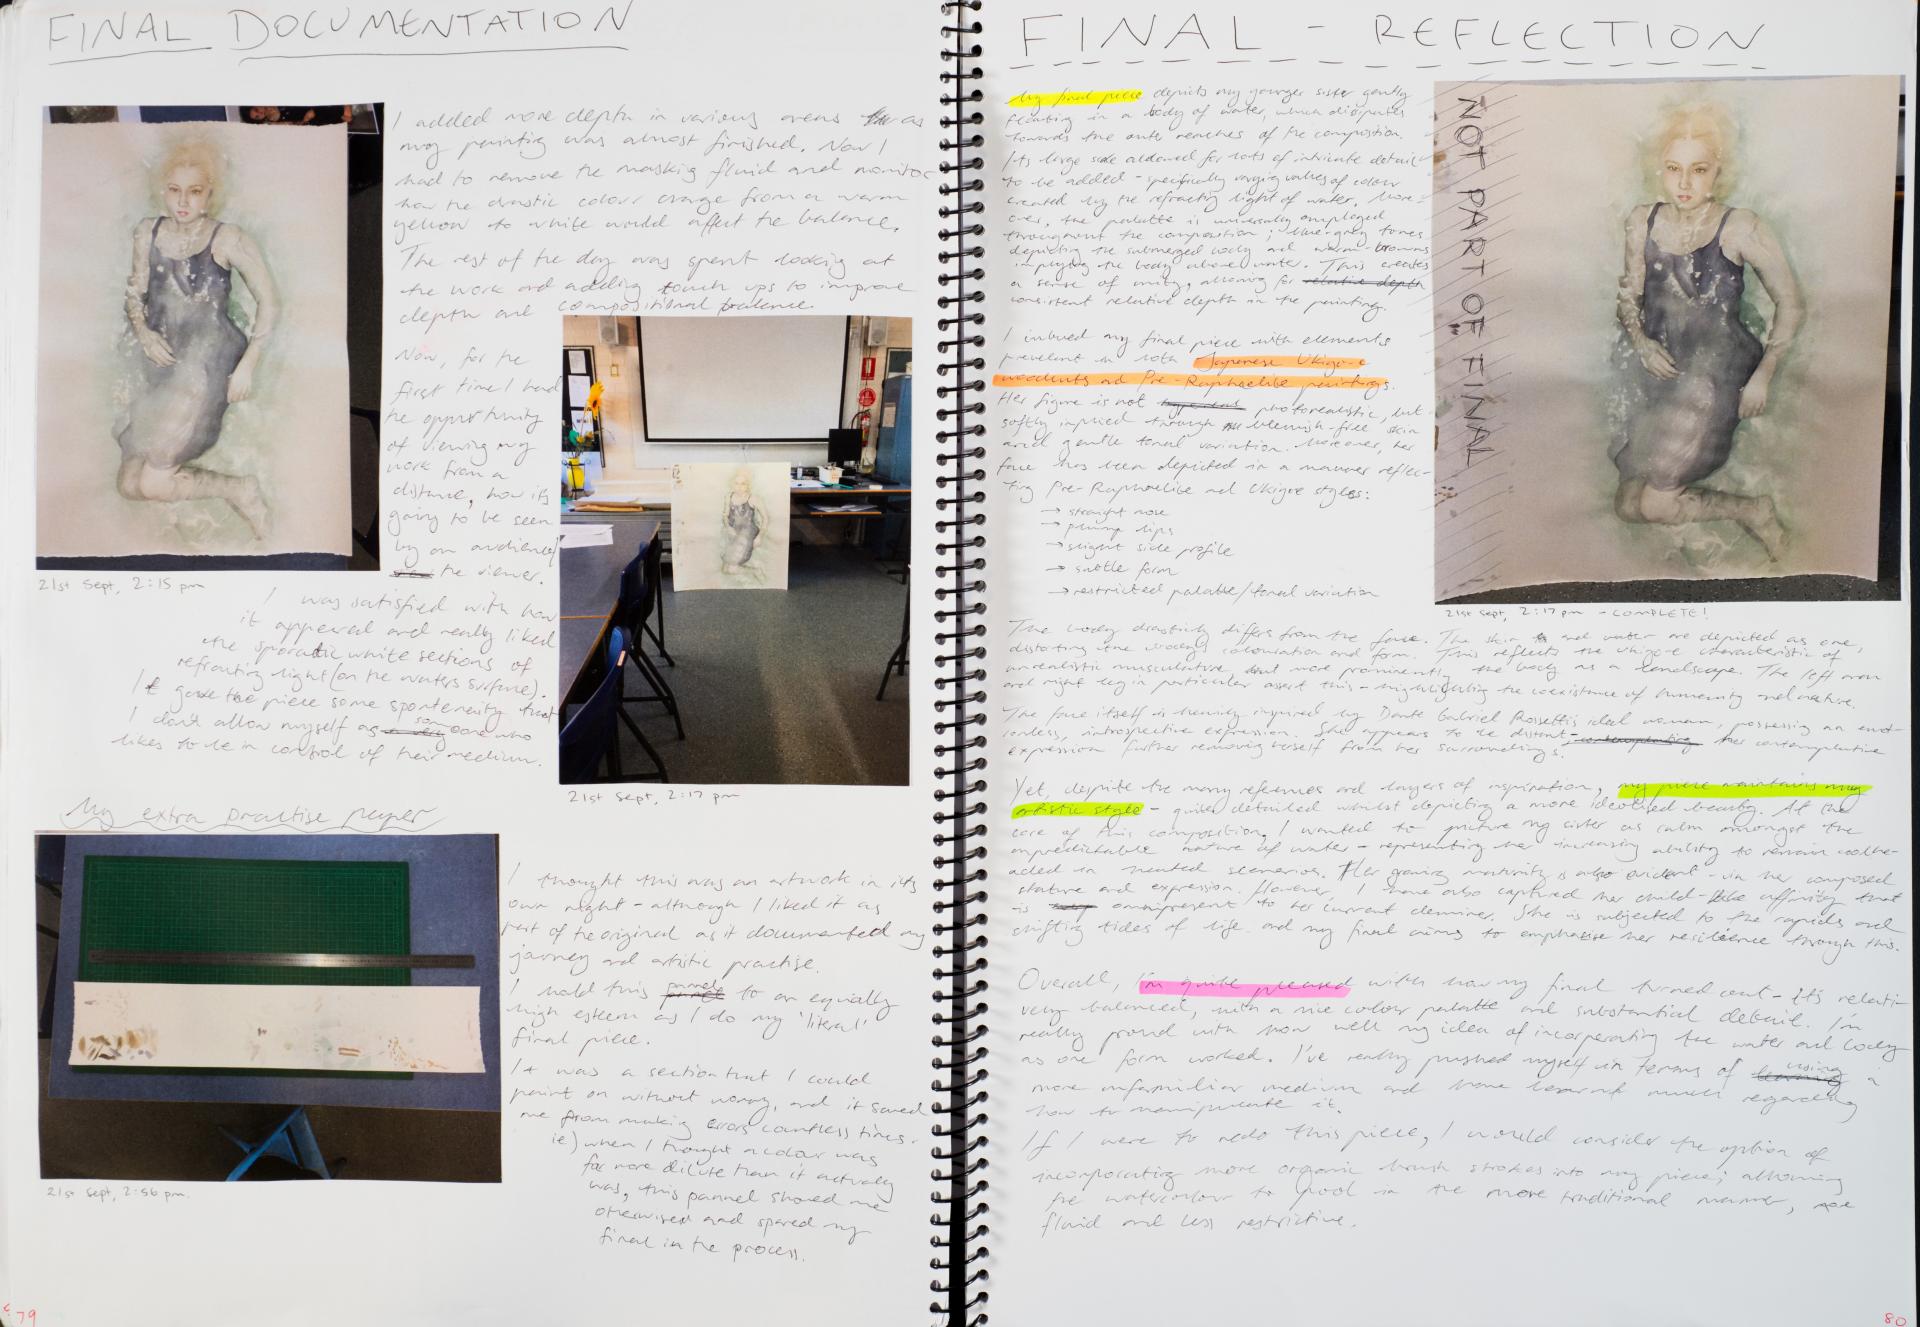 FINAL DOCUMENTATION
I added more depth in various areas as
my painting was almost finished. Now I
had to remove the masking fluid and monitor
how the drastic colour change from a warm
yellow to white would affect the balance.
The rest of the day was spent looking at
the work and adding touch ups to improve
depth and compositional balance.
Now, for the
first time I had
the opportunity
of viewing my
work from a
distance, how it's
going to be seen
by an audience/
the viewer.
21st Sept, 2:15 pm
I was satisfied with how
it appeared and really liked
the sporadic white sections of
refracting light (on the waters surface).
It gave the piece some spontaneity that
I don't allow myself as someone who
likes to be in control of their medium.
21st Sept, 2:17 pm
My extra practise paper
I thought this was an artwork in its
own right - although I liked it as
part of the original as it documented my
journey and artistic practise.
I hold this pannel to an equally
high esteem as I do my 'literal'
final piece.
It was a section that I could
paint on without worry, and it saved
me from making errors countless times.
ie) when I thought a colour was
far more dilute than it actually
was, this pannel showed me
otherwise and spared my
final in the process.
21st Sept, 2:56 pm.
79
FINAL - REFLECTION
My final piece depicts my younger sister gently
floating in a body of water, which dissipates
towards the outer reaches of the composition.
Its large scale allowed for lots of intricate detail
to be added - specifically varying values of colour
created by the refracting light of water. More-
over, the palette is universally employed
throughout the composition; blue-grey tones
depicting the submerged body and warm-browns
implying the body above water. This creates
a sense of unity, allowing for relative depth
consistent relative depth in the painting.
I imbued my final piece with elements
prevelent in both Japanese Ukiyo-e
woodcuts and Pre-Raphaelite paintings.
Her figure is not photorealistic, but
softly implied through blemish-free skin
and gentle tonal variation. Moreover, her
face has been depicted in a manner reflec-
ting Pre-Raphaelite and Ukiyoe styles:
→ straight nose
→ plump lips
→ slight side profile
→ subtle form
→ restricted palatte/tonal variation
NOT PART OF FINAL
21st Sept, 2:17 pm - COMPLETE!
The body drasticly differs from the face. The skin and water are depicted as one,
distorting the body's colouration and form. This reflects the Ukiyo-e characteristic of
unrealistic musculature but more prominently the body as a landscape. The left arm
and right leg in particular assert this - highlighting the coexistance of humanity and nature.
The face itself is heavily inspired by Dante Gabriel Rossetti's ideal woman, possessing an emot-
ionless, introspective expression. She appears to be distant - contemplating her contemplative
expression further removing herself from her surroundings.
Yet, despite the many references and layers of inspiration, my piece maintains my
artistic style - quite detailed whilst depicting a more idealised beauty. At the
core of this composition, I wanted to picture my sister as calm amongst the
unpredictable nature of water - representing her increasing ability to remain coolhe-
aded in heated scenarios. Her growing maturity is also evident - via her composed
stature and expression. However, I have also captured her child-like affinity that
is omnipresent to her current demeanor. She is subjected to the rapids and
shifting tides of life and my final aims to emphasise her resilience through this.
Overall, I'm quite pleased with how my final turned out - it's relati-
very balanced, with a nice colour palatte and substantial detail. I'm
really proud with how well my idea of incorporating the water and body
as one form worked. I've really pushed myself in terms of learning using a
more unfamiliar medium and have learnt much regarding
how to manipulate it.
If I were to redo this piece, I would consider the option of
incorporating more organic brush strokes into my piece; allowing
the watercolour to pool in the more traditional manner,
fluid and less restrictive.
80